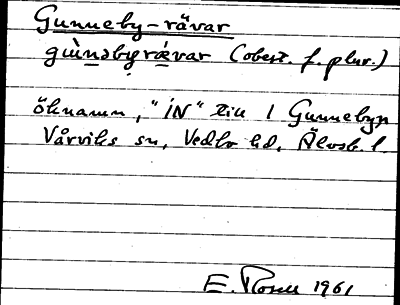 Gunneby-rävar
gùnǝbyrǽvar (obest. f. plur.)
öknamn, "IN" till 1 Gunnebyn
Vårviks sn, Vedbo hd, Älvsb. l.
E. Rosell 1961